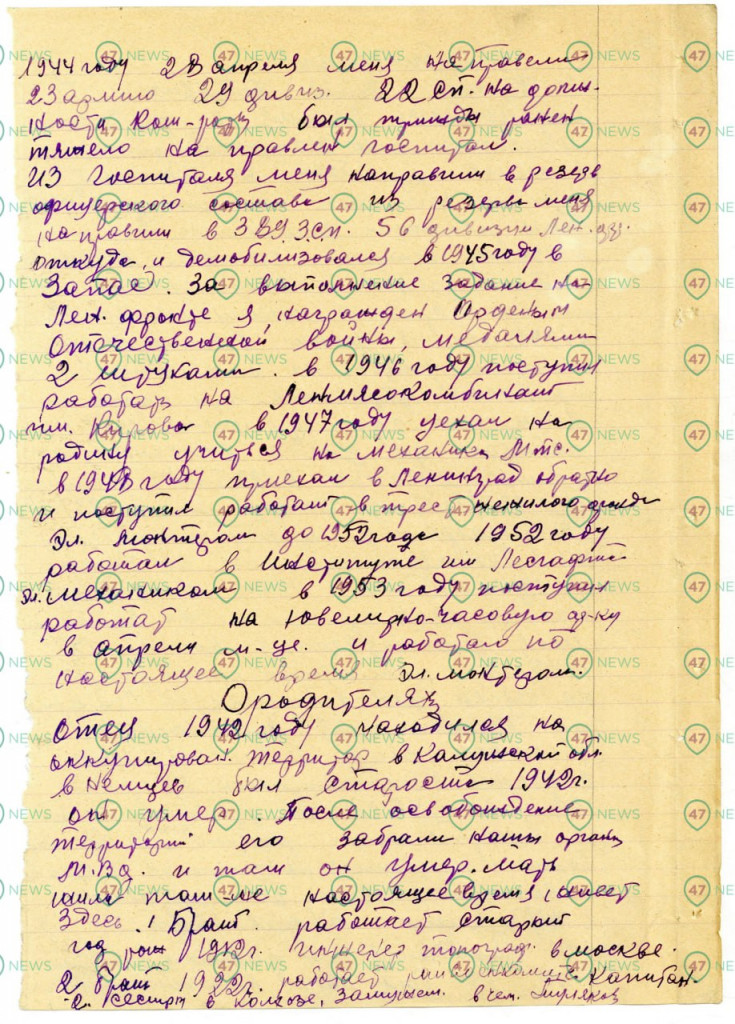 1944 году 28 апреля меня направели
23 армию 29 дивиз. 22 сп. на долж-
ности ком-роты был трижды ранен
тяжело на правлен госпитал.
Из госпиталя меня направили в резерв
офицерского состава из резерва меня
направили в З.С.П. 56 дивизии Лен.
откуда и демобилизовался в 1945 году в
Запас. За выполнение задание на
Лен. фронте я, награжден Орденым
Отечественной войны, медалями
2 штуками. в 1946 году поступил
работать на Ленмясокомбинат
им. Кирова в 1947 году уехал на
родину учиться на механика Мтс.
в 1948 году приехал в Ленинград обратно
и поступил работат в трест нежилого фонда
Эл. монтером до 1952 года 1952 году
работал в Институте им Лесгафта
эл. механиком в 1953 году поступил
работат на ювелирно-часовую ф-ку
в апрели м-це. и работаю по
настоящее время Эл. монтером.
О родителях
Отец 1942 году находился на
оккупирован. территор в Калужской обл.
в немцев был старостой 1942 г.
он умер. После освобождение
территории его забрали наши органы
М.Вд. и там он умер. Мать
жила там-же настоящее время живет
здесь. 1 Брат. работает старший
год рож 1912 г. инженер топограф. в москве.
2 брат 1922 г. работает капитан.
2. сестры в колхозе, замужем.